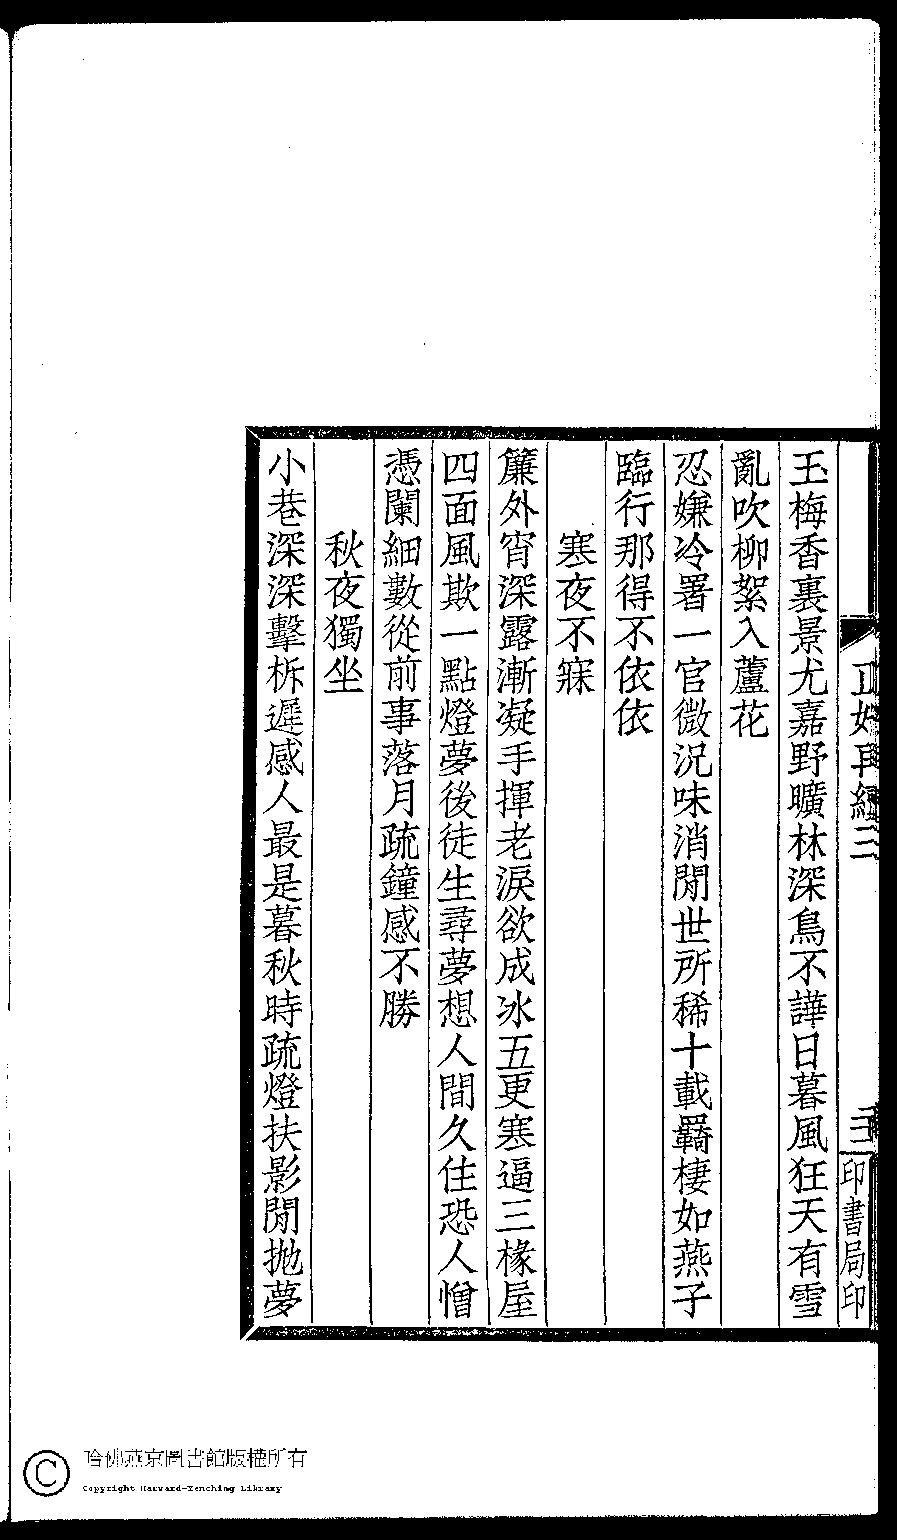 正始再續三
三
印書局印
玉梅香裏景尤嘉野曠林深鳥不譁日暮風狂天有雪
亂吹柳絮入蘆花
忍嫌冷署一官微況味消閒世所稀十載羈棲如燕子
臨行那得不依依
寒夜不寐
簾外宵深露漸凝手揮老淚欲成冰五更寒逼三椽屋
四面風欺一點燈夢後徒生尋夢想人間久住恐人憎
憑闌細數從前事落月疏鐘感不勝
秋夜獨坐
小巷深深擊柝遲感人最是暮秋時疏燈扶影閒拋夢
哈佛燕京圖書館版權所有
Copyright Harvard-Yenching Library